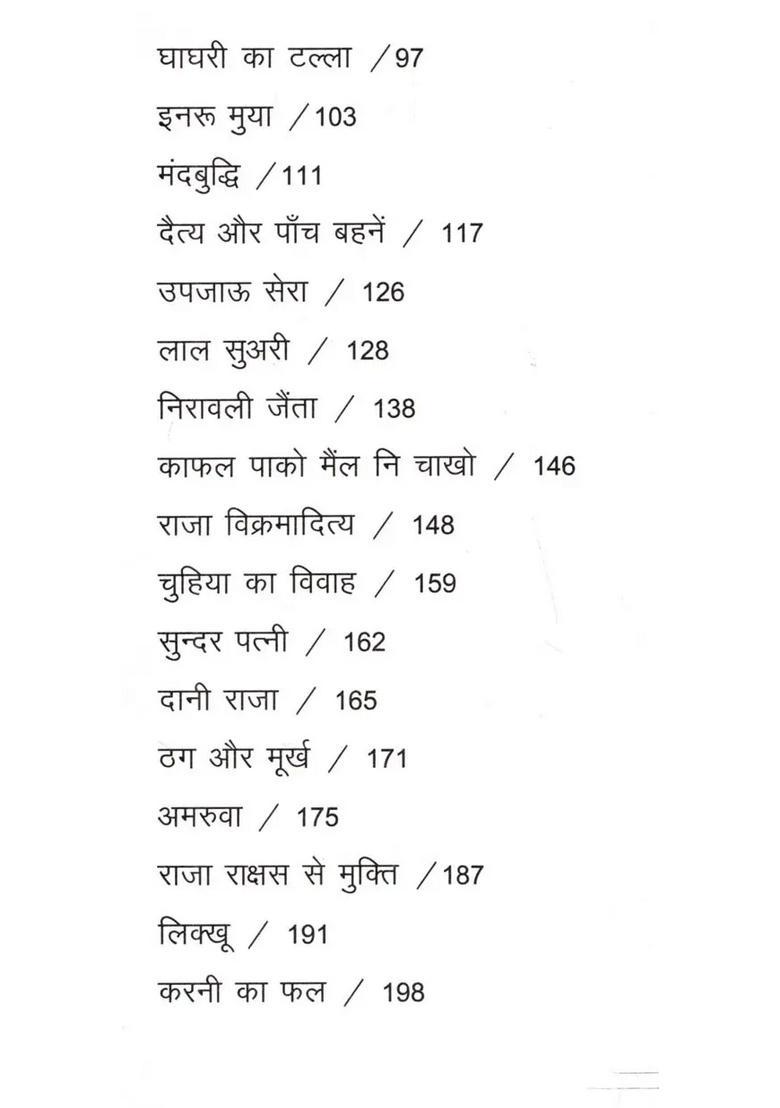 घाघरी का टल्ला /97
इनरू मुया /103
मंदबुद्धि /111
दैत्य और पाँच बहनें / 117
उपजाऊ सेरा / 126
लाल सुअरी / 128
निरावली जैंता / 138
काफल पाको मैंल नि चाखो / 146
राजा विक्रमादित्य / 148
चुहिया का विवाह / 159
सुन्दर पत्नी / 162
दानी राजा / 165
ठग और मूर्ख / 171
अमरुवा / 175
राजा राक्षस से मुक्ति /187
लिक्खू / 191
करनी का फल / 198